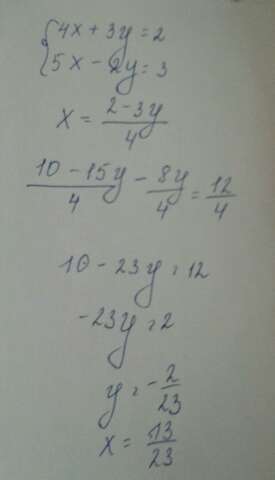 {4x + 3y = 2
5x - 2y = 3
x = (2-3y)/4
(10 - 15y)/4 - 8y/4 = 12/4
10 - 23y = 12
-23y = 2
y = -2/23
x = 13/23